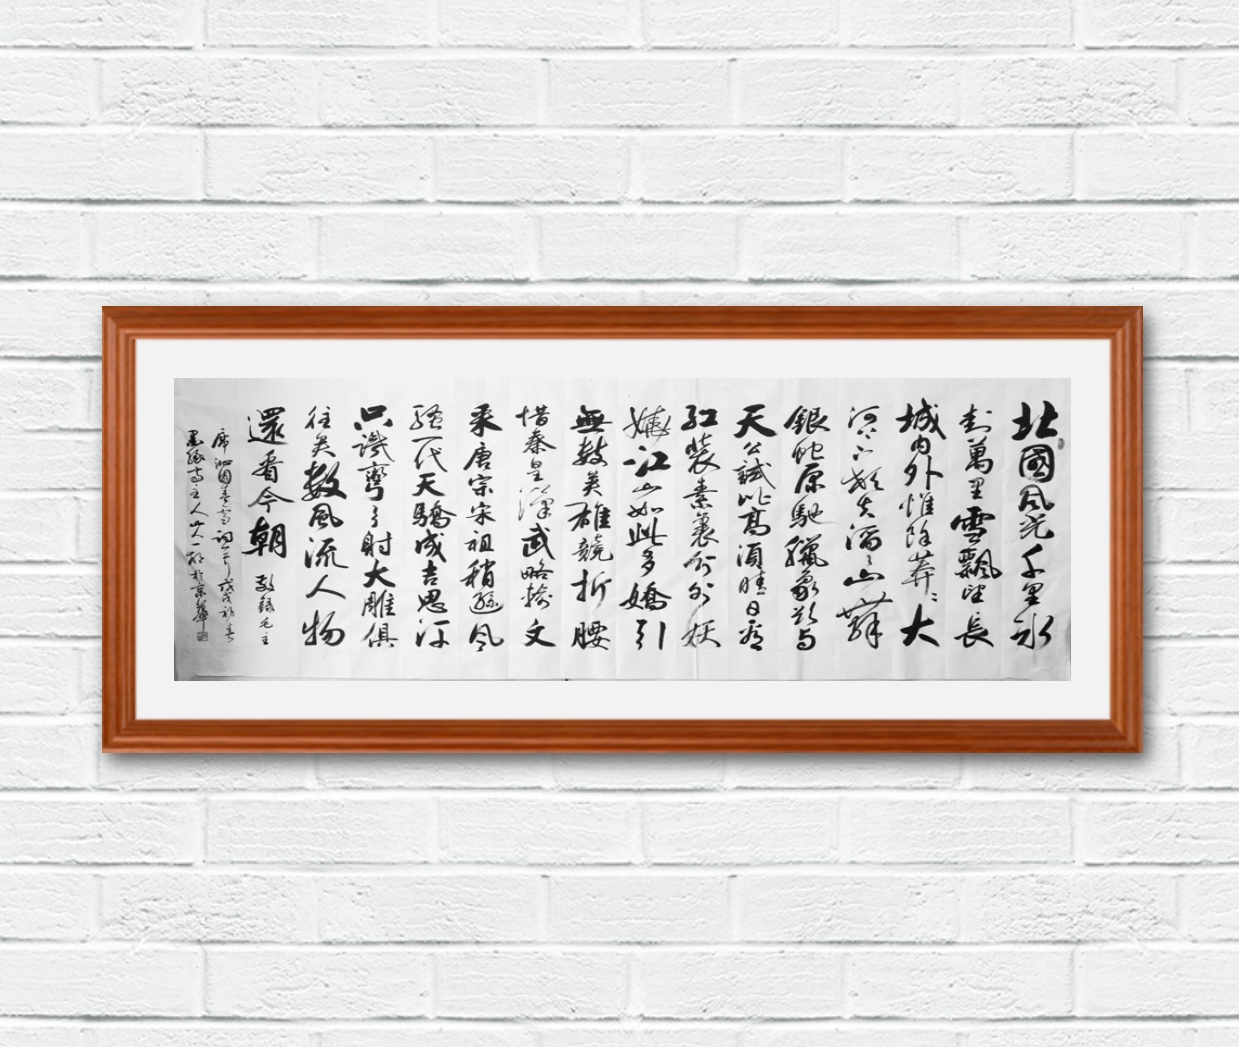 北國風光千里冰
封萬里雪飄望長
城内外惟餘莽々大
河上下頓失滔々山舞
銀蛇原馳臘象欲与
天公試比高須晴日看
紅裝素裹分外妖
嬈江山如此多嬌引
無數英雄競折腰
惜秦皇漢武略輸文
采唐宗宋祖稍遜風
騷一代天驕成吉思汗
只識彎弓射大雕俱
往矣數風流人物
還看今朝 敬錄毛主
席沁園春雪詞一首戊戌初春
墨緣齋主人於京華